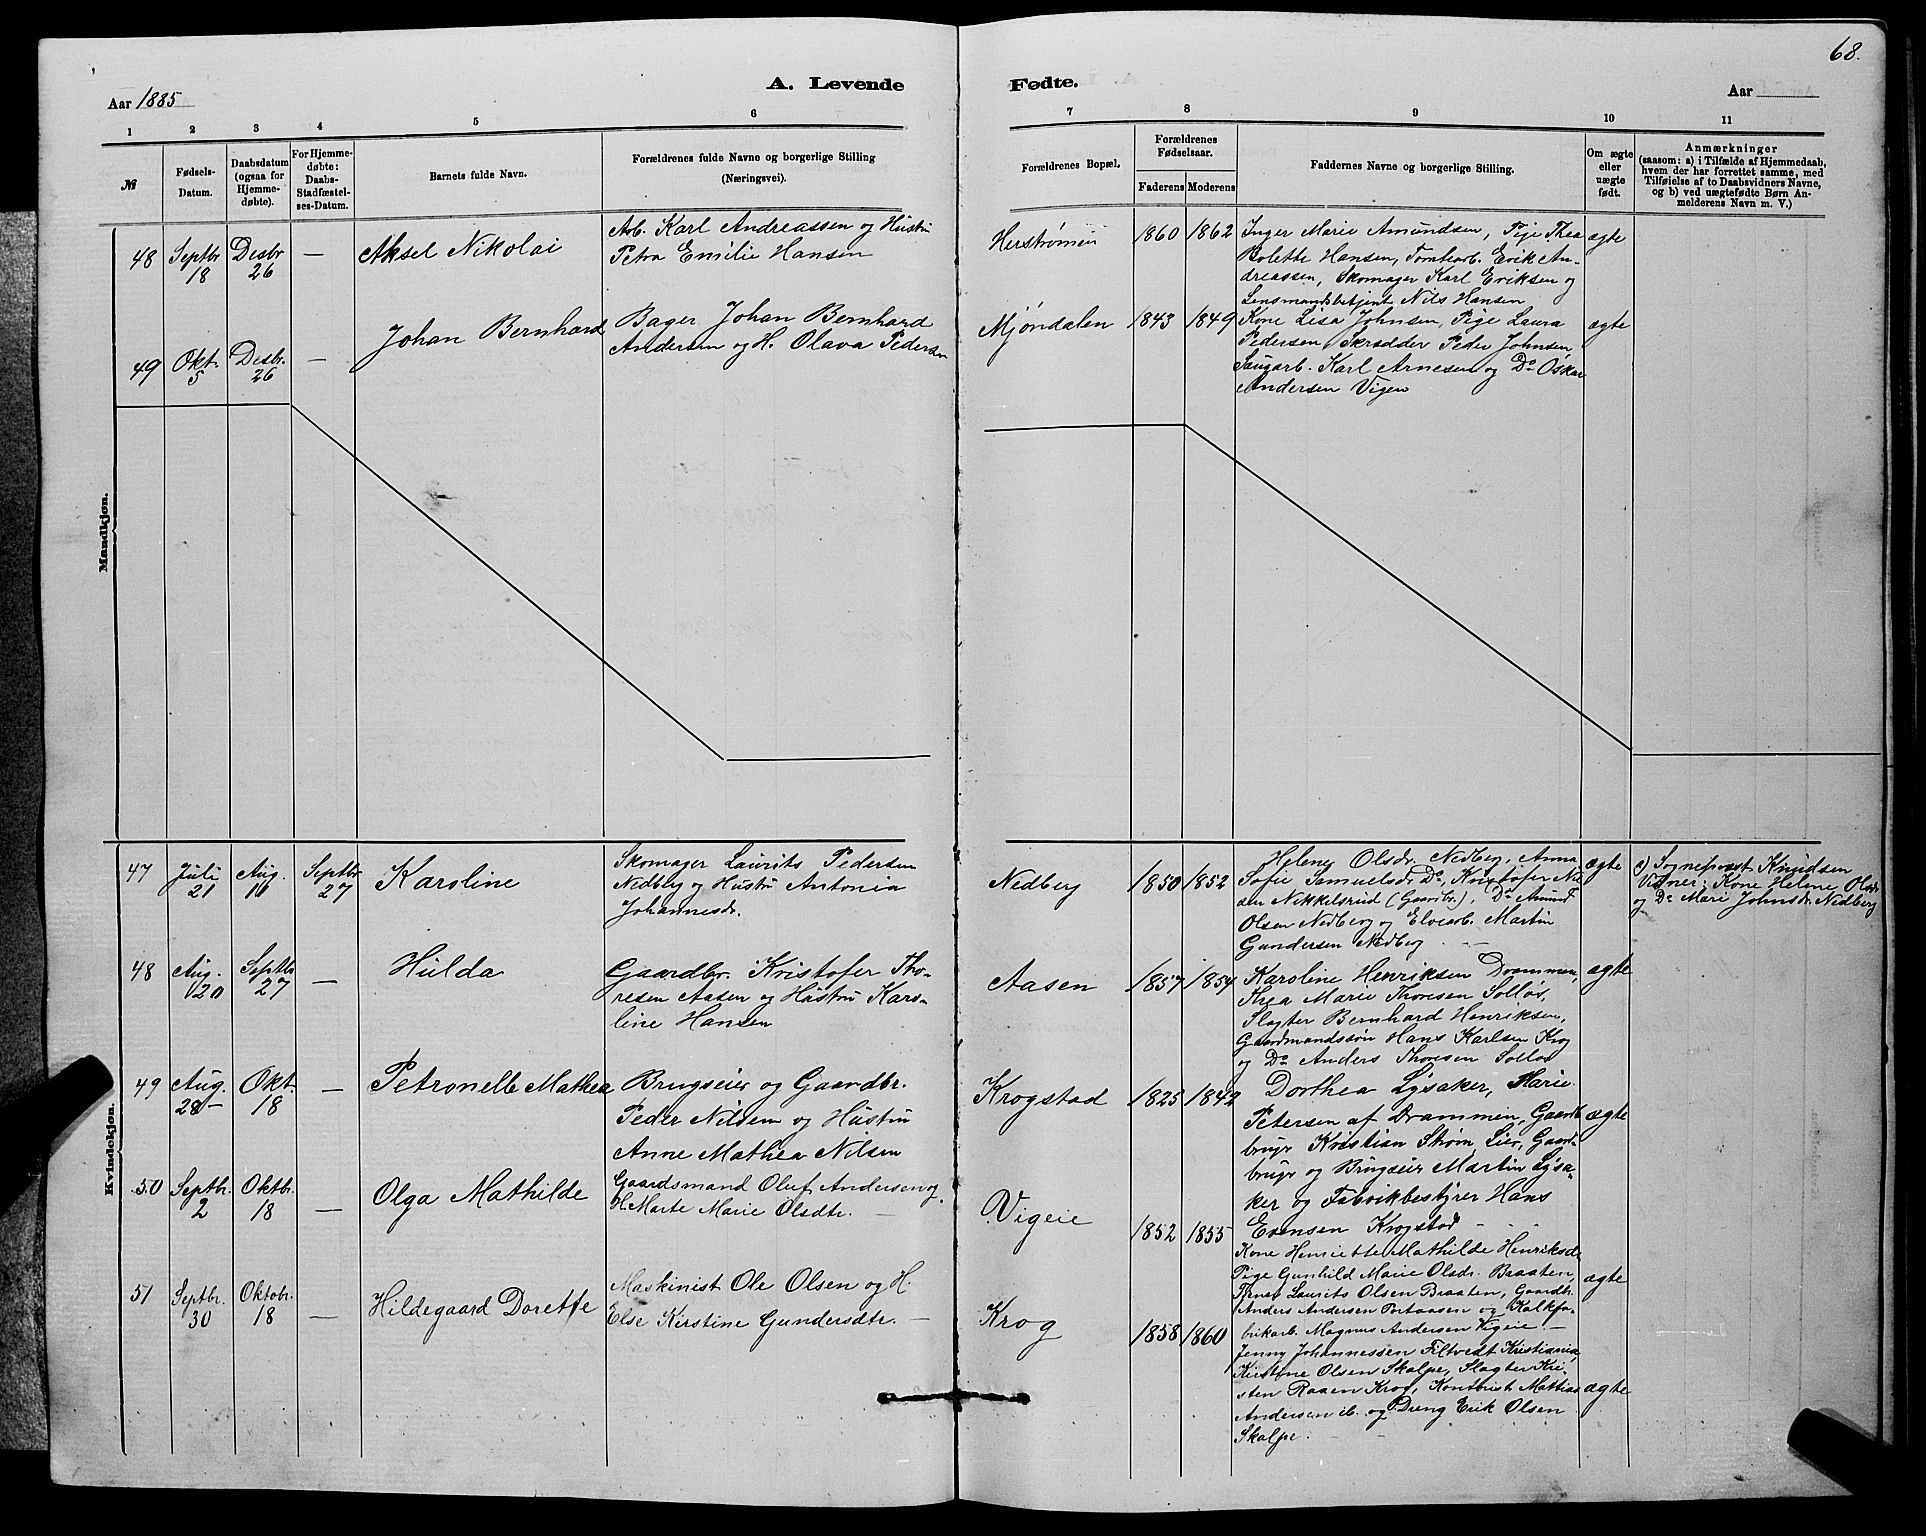 68.
A. Levende
Fødte.
Aar 1885
Aar
1 2 3 4 5 6 7 8 9 10 11
№
Fødsels-
Datum.
Daabsdatum
(ogsaa for
Hjemme-
døbte).
For Hjemme-
døbte:
Daabs-
Stadfæstel-
ses-Datum.
Barnets fulde Navn.
Forældrenes fulde Navne og borgerlige Stilling
(Næringsvei).
Forældrenes Bopæl.
Forældrenes
Fødselsaar.
Faderens Moderens
Faddernes Navne og borgerlige Stilling.
Om ægte
eller
uægte
født.
Anmærkninger
(saasom: a) i Tilfælde af Hjemmedaab,
hvem der har forrettet samme, med
Tilføielse af to Daabsvidners Navne,
og b) ved uægtefødte Børn An-
melderens Navn m. V.)
Mandkjøn.
48
Septbr
18
Desbr
26
—
Aksel Nikolai
Arb. Karl Andreassen og Hustru
Petra Emilie Hansen
Herstrømen
1860 1862
Inger Marie Amundsen, Pige Thea
Bolette Hansen, Tomtearb. Erik An-
dreassen, Skomager Karl Eriksen og
Lensmandsbetjent Nils Hansen
ægte
49
Okt.
5
Desbr.
26
—
Johan Bernhard
Bager Johan Bernhard
Andersen og H. Olava Pedersen
Mjøndalen
1843 1849
Kone Lisa Johnsen, Pige Laura
Pedersen, Skrædder Peder Johnsen,
Saugarb. Karl Arnesen og Do Oskar
Andersen Vigen
ægte
Kvindekjøn.
47
Juli
21
Aug.
16
Septbr
27
Karoline
Skomager Laurits Pedersen
Nedberg og Hustru Antonia
Johannesdr.
Nedberg
1850 1852
Helene Olsdr. Nedberg, Anna
Sofie Samuelsdr. Do, Kristofer
Nikkelsrud (Gaardbr.), Do Amund
Olsen Nedberg og Elvearb. Martin
Gundersen Nedberg
ægte
a) Sogneprest Knudsen
Vidner: Kone Helene Olsdr
og Do Mari Johnsdr. Nedberg
48
Aug.
20
Septbr
27
—
Hulda
Gaardbr. Kristofer Tho-
resen Aasen og Hustru Karo-
line Hansen
Aasen
1857 1854
Karoline Henriksen Drammen,
Thea Marie Thoresen Solløs,
Slagter Bernhard Henriksen,
Gaardmandssøn Hans Karlsen Krog
og Do Anders Thoresen Solløs
ægte
49
Aug.
28
Okt.
18
—
Petronelle Mathea
Brugseier og Gaardbr.
Peder Nilsen og Hustru
Anne Mathea Nilsen
Krogstad
1825 1842
Dorthea Lysaker, Marie
Petersen af Drammen, Gaard-
bruger Kristian Strøm Lier, Gaard-
bruger og Brugseier Martin Lysa-
ker og Fabrikbestyrer Hans
Evensen Krogstad
ægte
50
Septbr.
2
Oktbr.
18
—
Olga Mathilde
Gaardsmand Oluf Andersen og
H. Marte Marie Olsdtr. —
Vigeie
1852 1855
Kone Henriette Mathilde Henriksdr
Pige Gunhild Marie Olsdr. Braaten,
Laurits Olsen Braaten, Gaardbr.
Anders Andersen Portaasen og Kalkfa-
brikarb. Magnus Andersen Vigeie. —
ægte
51
Septbr.
30
Oktobr.
18
—
Hildegaard Dorette
Maskinist Ole Olsen og H.
Else Kirstine Gundersdtr. —
Krog
1858 1860
Jenny Johannessen Filtvedt Kristiania,
Kirstine Olsen Skalpe, Slagter Kri-
sten Raaen Krog, Kontorist Mattias
Andersen ib. og Dreng Erik Olsen
Skalpe. —
ægte